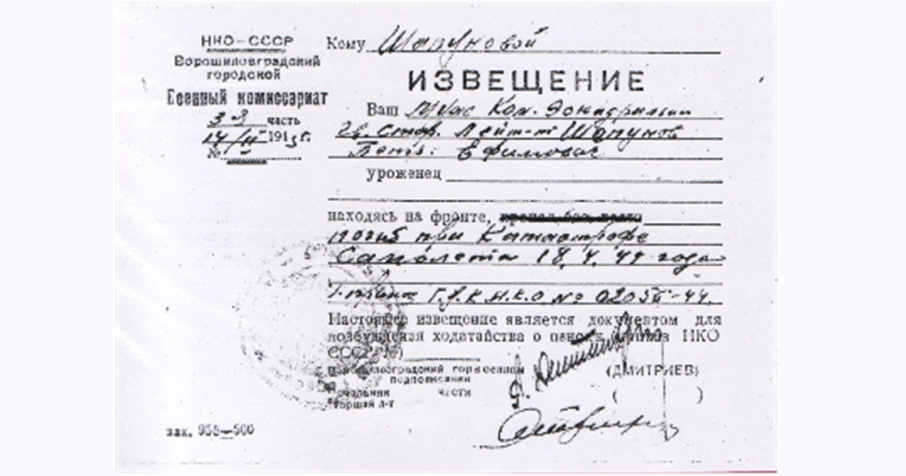 НКО-СССР
Ворошиловградский
городской
Военный комиссариат
3-я часть
14/II 1945г.
№
Кому Шапуновой
ИЗВЕЩЕНИЕ
Ваш муж Ком. Эскадрильи
Гв. Стар. Лейт-т Шапунов
Ефимович
уроженец
находясь на фронте, пропал без вести
погиб при катастрофе
Самолета 18.4.44 года
№ 02056-44.
Настоящее извещение является документом для
возбуждения ходатайства о НКО
СССР №
Ворошиловградский горвоенком
подполковник (ДМИТРИЕВ)
Начальник части ( )
старший л-т
зак. 955-500